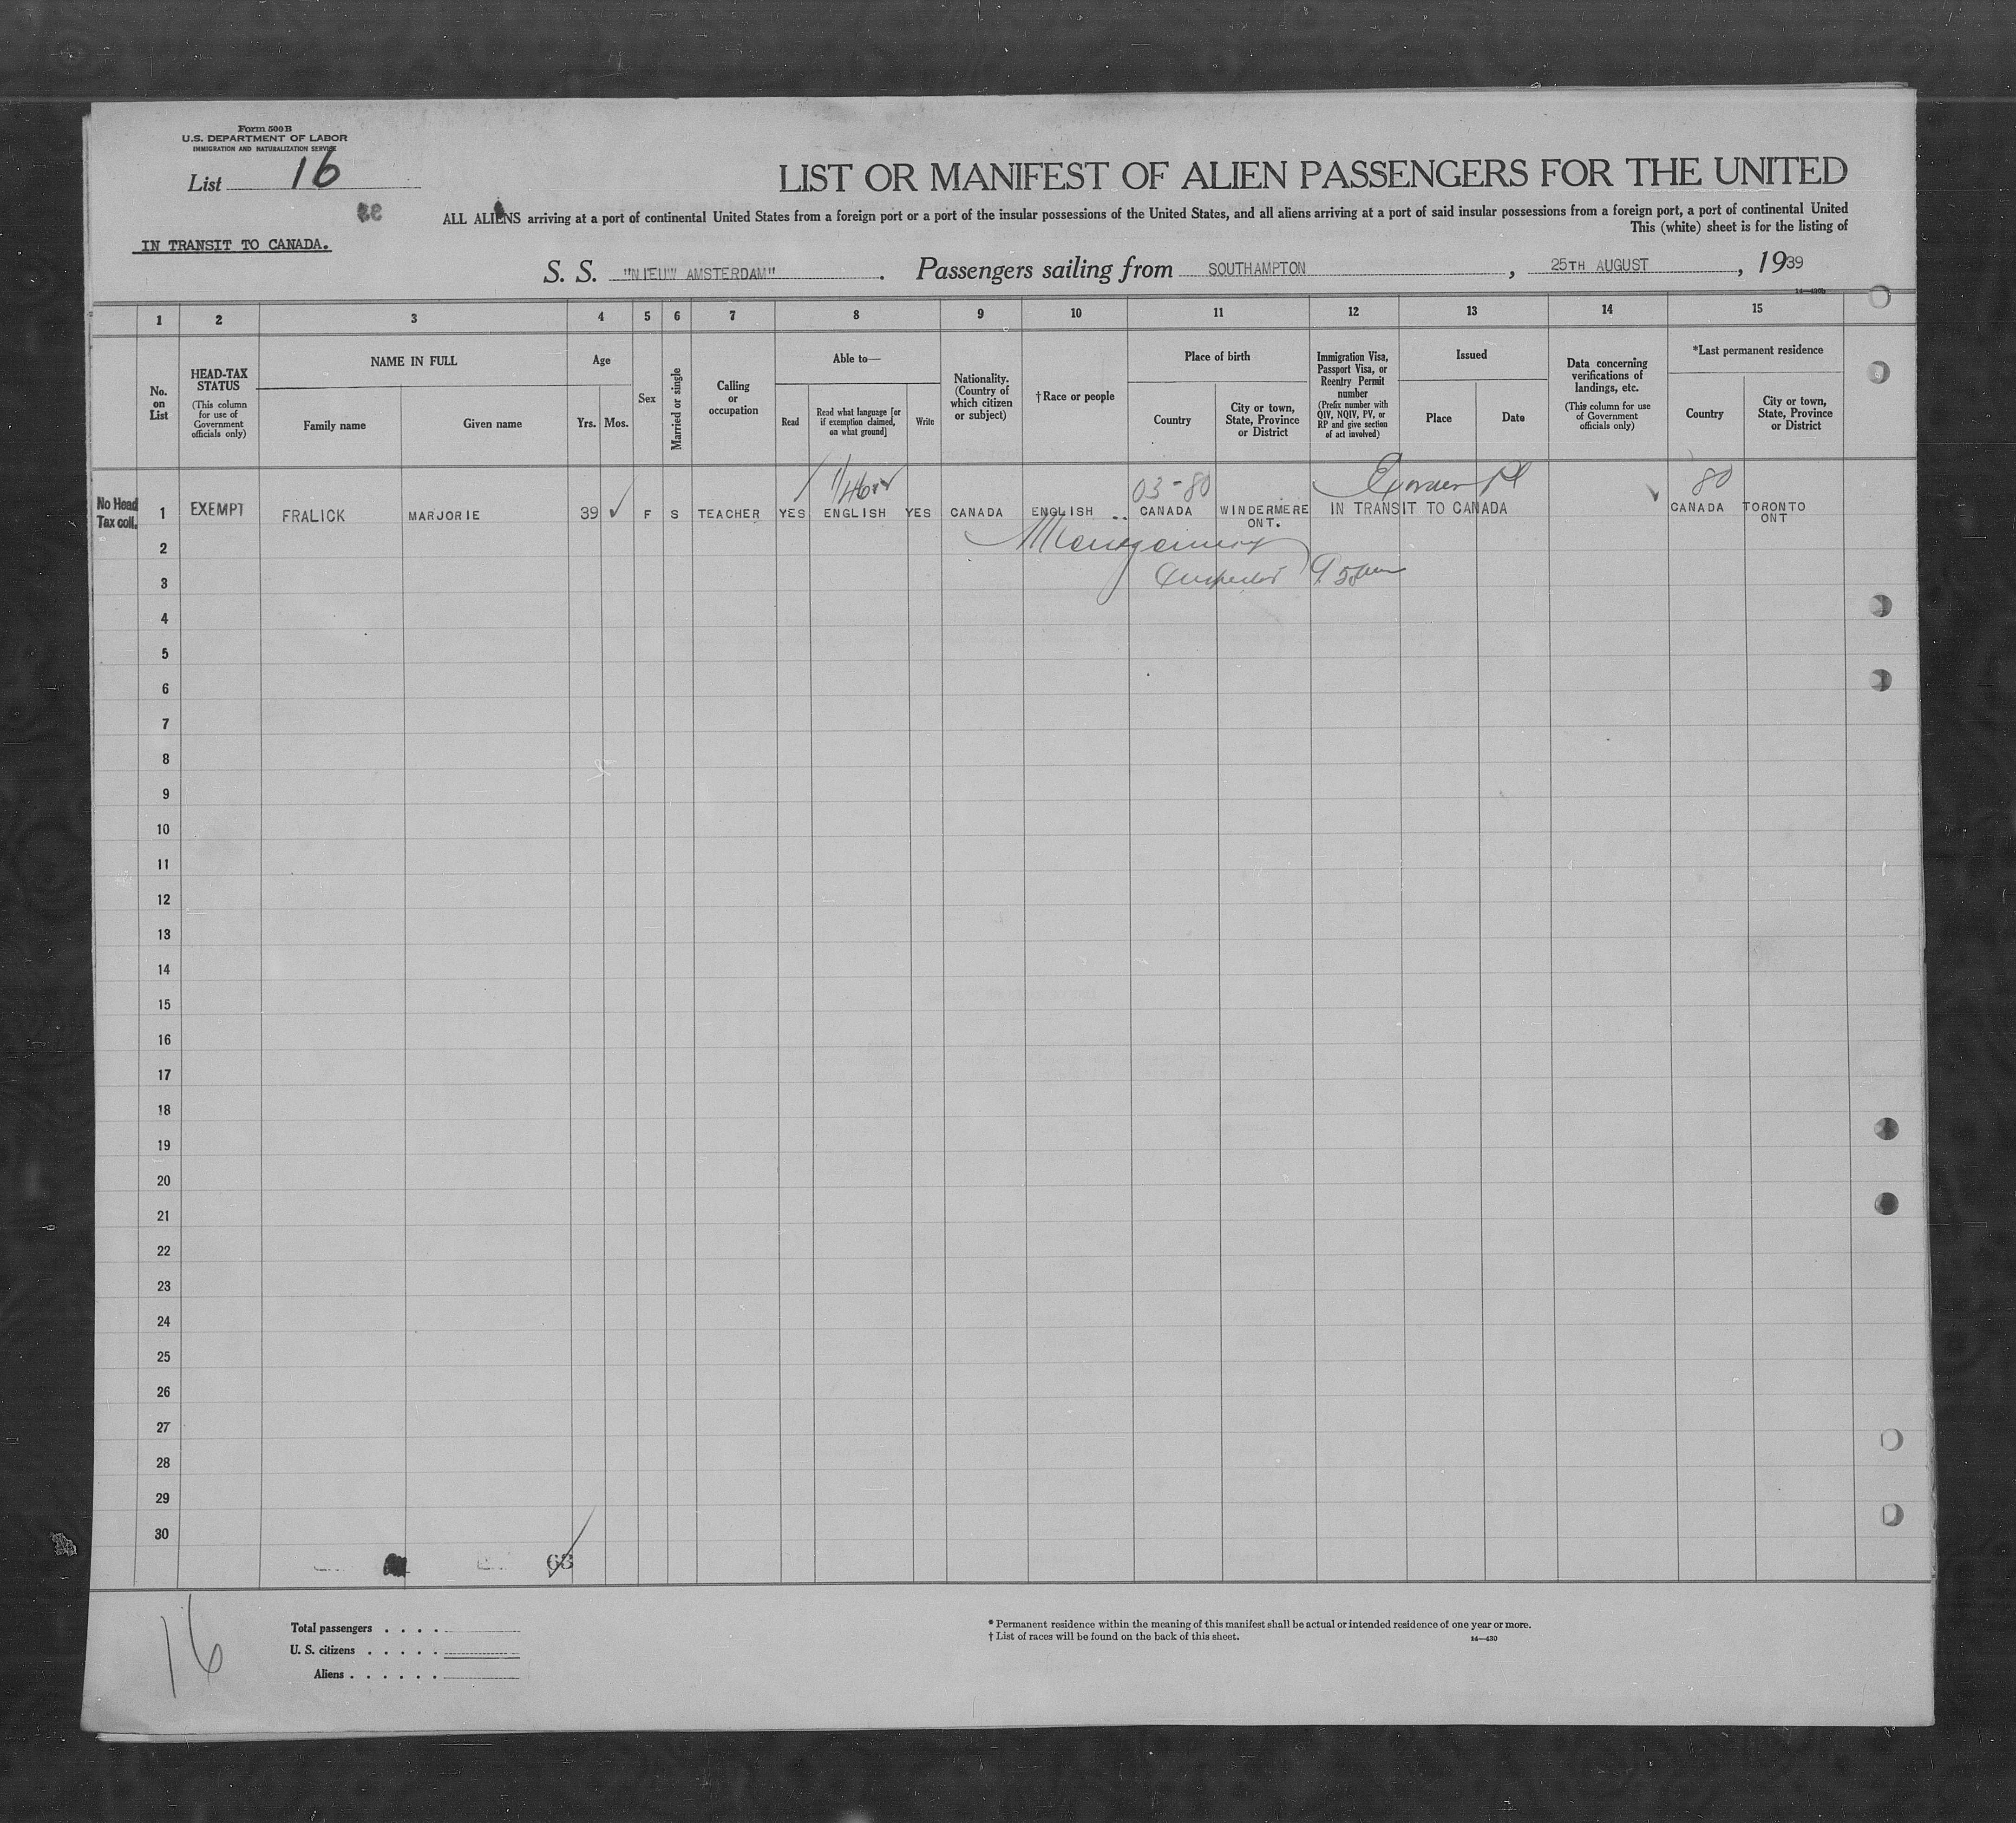 Form 500B
U.S. DEPARTMENT OF LABOR
IMMIGRATION AND NATURALIZATION SERVICE
List 16
LIST OR MANIFEST OF ALIEN PASSENGERS FOR THE UNITED
ALL ALIENS arriving at a port of continental United States from a foreign port or a port of the insular possessions of the United States, and all aliens arriving at a port of said insular possessions from a foreign port, a port of continental United
This (white) sheet is for the listing of
IN TRANSIT TO CANADA.
S. S. "NIEUW AMSTERDAM". Passengers sailing from SOUTHAMPTON, 25TH AUGUST, 1939
1 2 3 4 5 6 7 8 9 10 11 12 13 14 15
No. on List
HEAD-TAX STATUS
(This column for use of Government officials only)
NAME IN FULL
Family name
Given name
Age
Yrs. Mos.
Sex
Married or single
Calling or occupation
Able to—
Read
Read what language [or if exemption claimed, on what ground]
Write
Nationality. (Country of which citizen or subject)
†Race or people
Place of birth
Country
City or town, State, Province or District
Immigration Visa, Passport Visa, or Reentry Permit number
(Prefix number with QIV, NQIV, PV, or RP and give section of act involved)
Issued
Place
Date
Data concerning verifications of landings, etc.
(This column for use of Government officials only)
*Last permanent residence
Country
City or town, State, Province or District
03-80
80
No Head Tax coll.
1 EXEMPT FRALICK MARJORIE 39 ✓ F S TEACHER YES ENGLISH YES CANADA ENGLISH CANADA WINDERMERE ONT. IN TRANSIT TO CANADA CANADA TORONTO ONT
2
3
4
5
6
7
8
9
10
11
12
13
14
15
16
17
18
19
20
21
22
23
24
25
26
27
28
29
30
63
16
Total passengers . . . .
U. S. citizens . . . . .
Aliens . . . . . .
* Permanent residence within the meaning of this manifest shall be actual or intended residence of one year or more.
† List of races will be found on the back of this sheet.
14—430